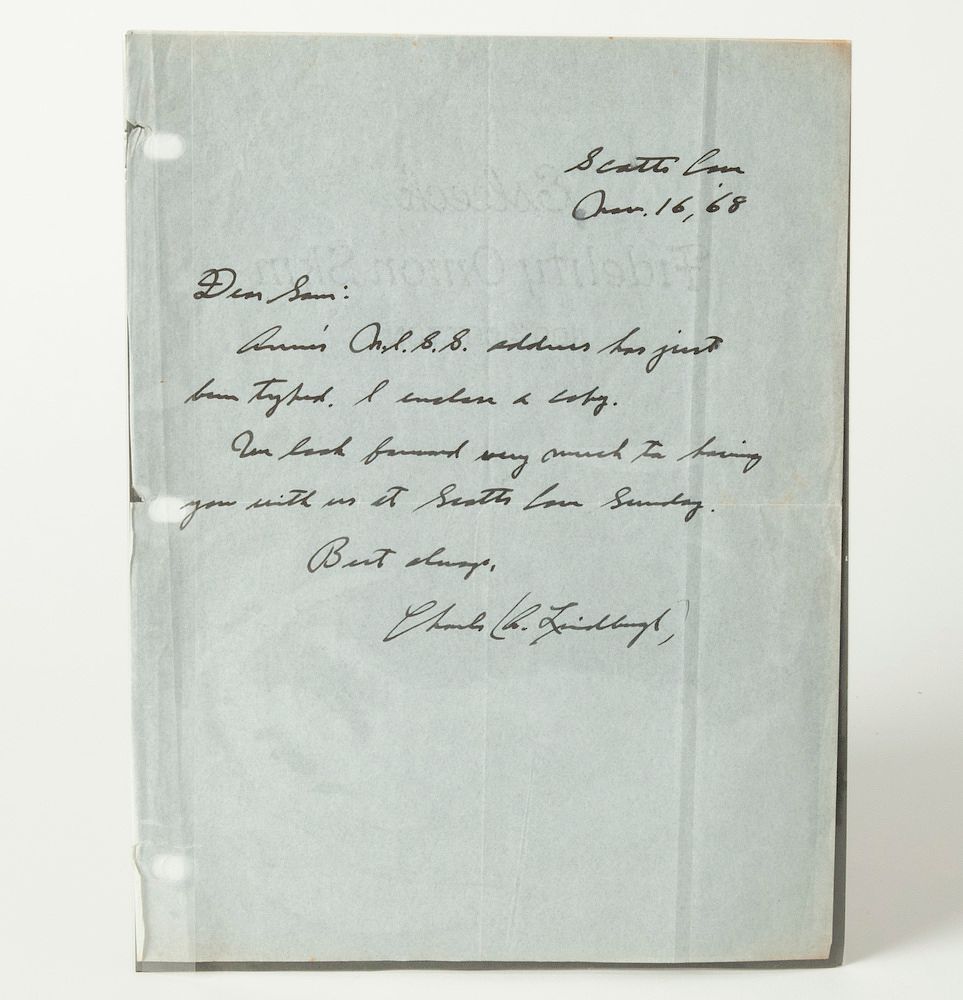 Scotts Cove
Nov. 16, '68
Esleeck
Fidelity Onion Skin
Dear Sam:
Anne's N.I.S.S. address has just
been typed. I enclose a copy.
We look forward very much to having
you with us at Scotts Cove Sunday.
Best always,
Charles (A. Lindbergh)